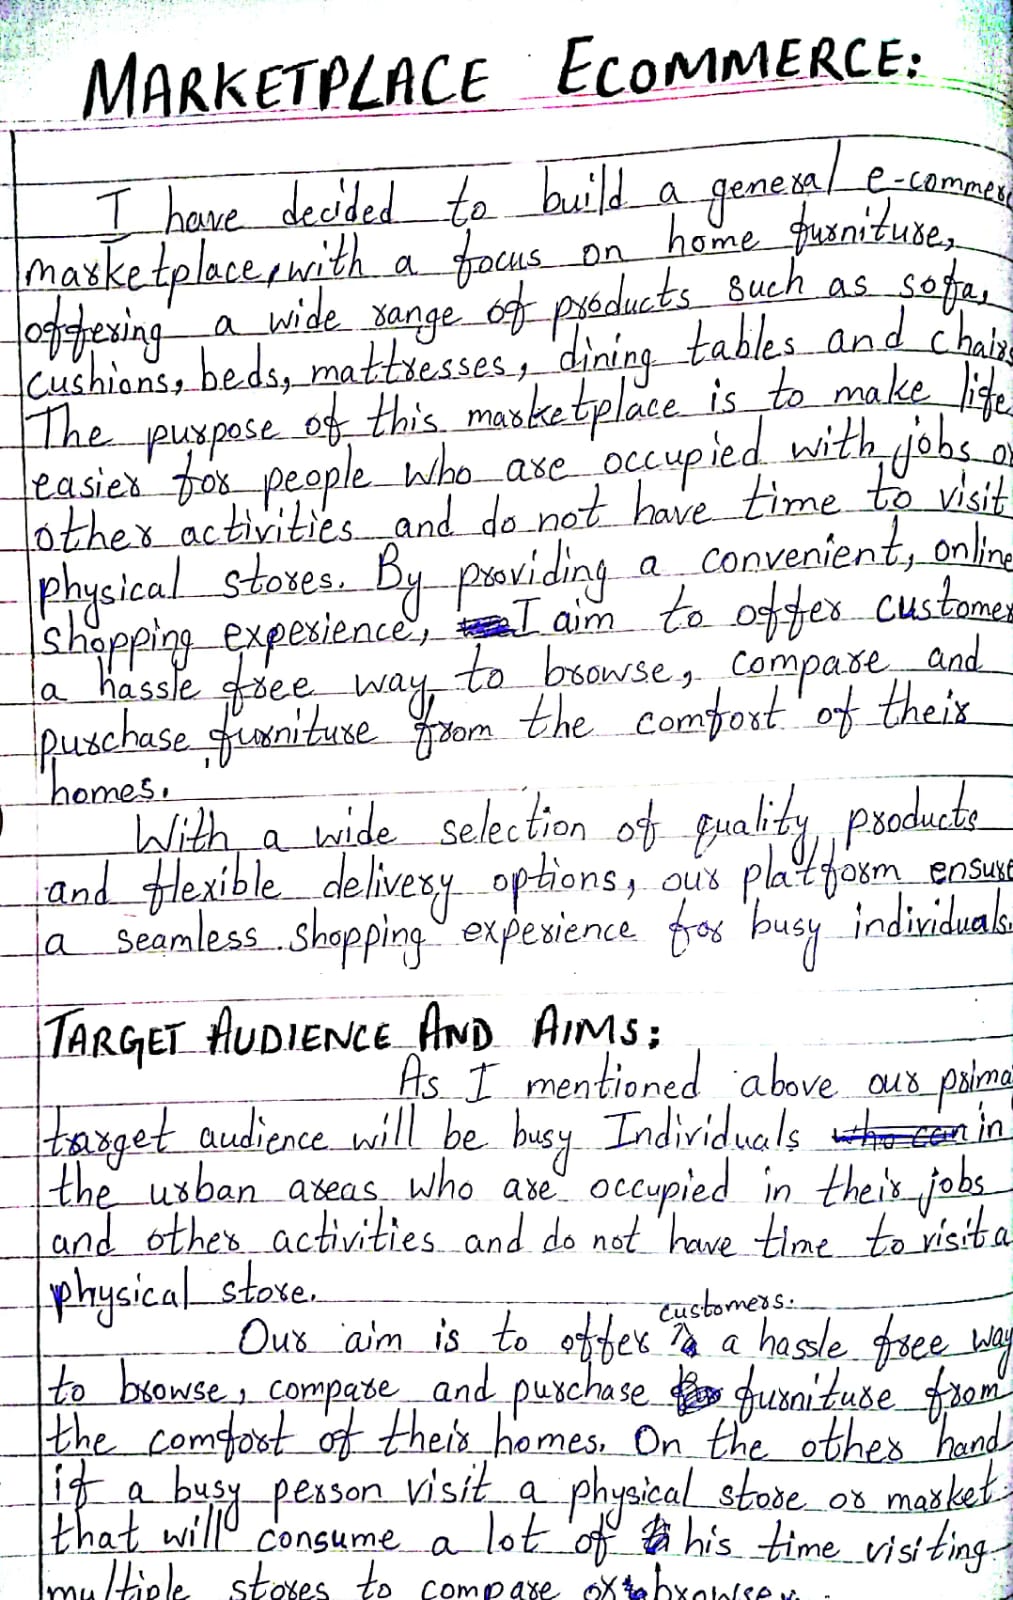 MARKETPLACE ECOMMERCE:
I have decided to build a general e-commer
marketplace, with a focus on home furniture,
offering a wide range of products such as sofa,
cushions, beds, mattresses, dining tables and chairs
The purpose of this marketplace is to make life
easier for people who are occupied with jobs o
other activities and do not have time to visit
physical stores. By providing a convenient, online
shopping experience, I aim to offer customer
a hassle free way to browse, compare and
purchase furniture from the comfort of their
homes.
With a wide selection of quality products
and flexible delivery options, our platform ensure
a seamless shopping experience for busy individuals.
TARGET AUDIENCE AND AIMS:
As I mentioned above our prima
target audience will be busy Individuals who can in
the urban areas who are occupied in their jobs
and other activities and do not have time to visit a
physical store.
customers.
Our aim is to offer a hassle free way
to browse, compare and purchase furniture from
the comfort of their homes. On the other hand
if a busy person visit a physical store or market
that will consume a lot of his time visiting
multiple stores to compare or browse